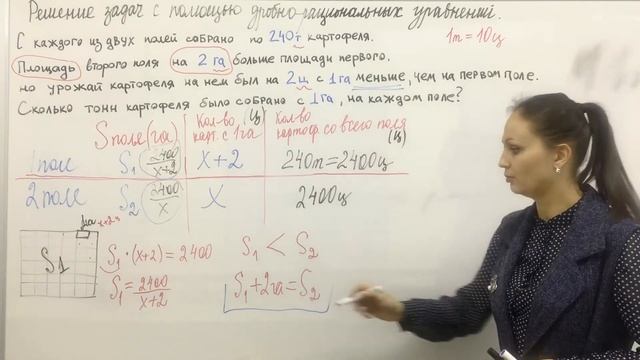 Решение задач с помощью дробно-рациональных уравнений.
С каждого из двух полей собрано по 240т картофеля.
1т = 10ц
Площадь второго поля на 2 га больше площади первого.
но урожай картофеля на нем был на 2ц с 1га меньше, чем на первом поле.
Сколько тонн картофеля было собрано с 1га, на каждом поле?
S поля (га) Кол-во (ц) карт. с 1га Кол-во картоф. со всего поля (ц)
1 поле S₁ 2400/x+2 x+2 240т=2400ц
2 поле S₂ 2400/x x 2400ц
S₁
S₁ · (x+2) = 2400
S₁ < S₂
S₁ = 2400/x+2
S₁+2га=S₂